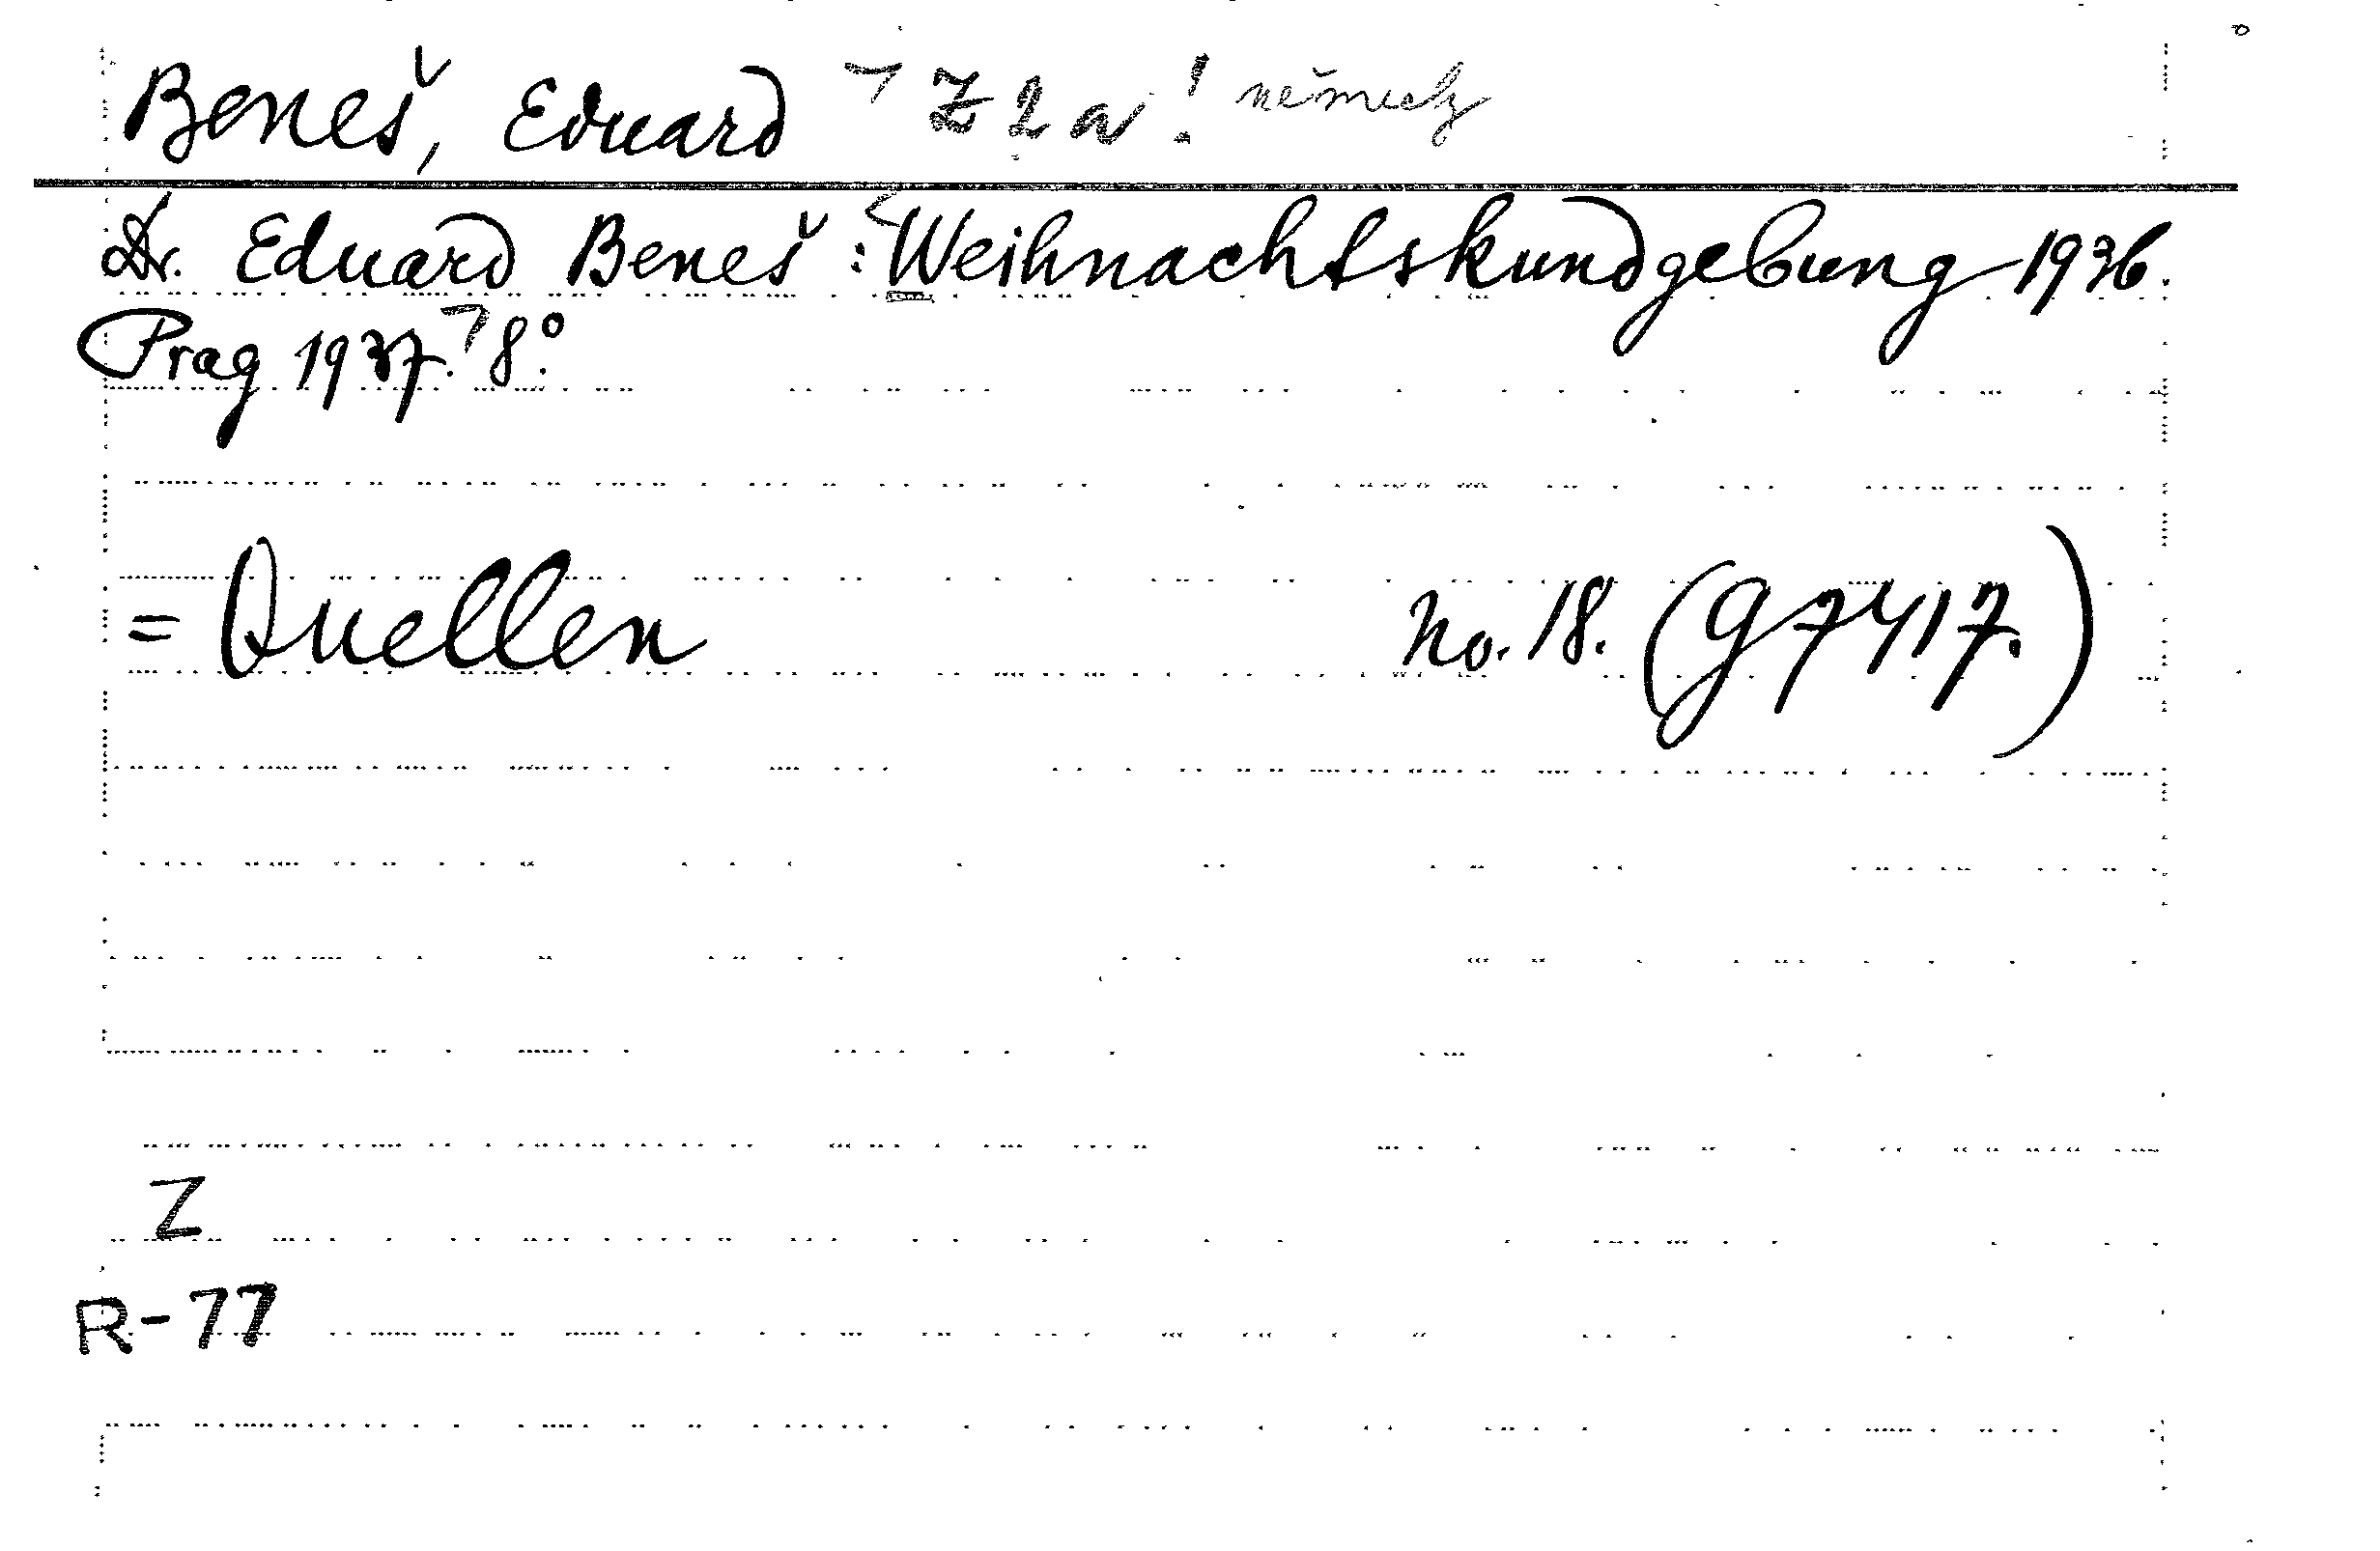 Beneš, Eduard ⌝ Z 2 a! německy
Dr. Eduard Beneš: <Weihnachtskundgebung 1936.
Prag 1937.⌝ 8°.
= Quellen No. 18. (G 7417.)
Z
R-77